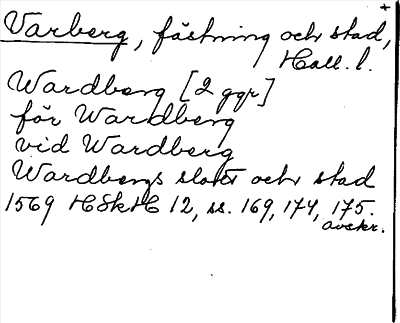 Varberg, fästning och stad,
Hall. l.
Wardberg [2 ggr]
för Wardberg
vid Wardberg
Wardbergs slott och stad
1569 HSkH 12, ss. 169, 174, 175.
avskr.